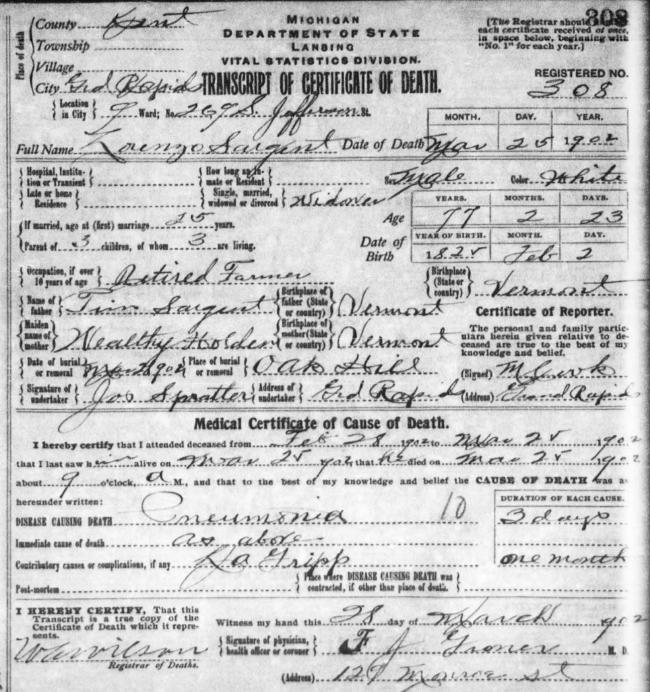 308
MICHIGAN
DEPARTMENT OF STATE
LANSING
VITAL STATISTICS DIVISION.
TRANSCRIPT OF CERTIFICATE OF DEATH.
(The Registrar should
each certificate received at once,
in space below, beginning with
"No. 1" for each year.)
REGISTERED NO.
308
Place of death
County Kent
Township
Village
City Grd Rapids
Location in City 9 Ward; No. 269 S. Jefferson St.
Full Name Lorenzo Sargent Date of Death
MONTH. DAY. YEAR.
Mar 25 1902
Hospital, Institution or Transient
How long an Inmate or Resident
Sex Male Color White
Late or home Residence
Single, married, widowed or divorced Widower
Age
YEARS. MONTHS. DAYS.
77 2 23
If married, age at (first) marriage 25 years.
Parent of 3 children, of whom 3 are living.
Date of Birth
YEAR OF BIRTH. MONTH. DAY.
1825 Feb 2
Occupation, if over 10 years of age Retired Farmer
Birthplace (State or country) Vermont
Name of father Sargent
Birthplace of father (State or country) Vermont
Maiden name of mother Wealthy Holden
Birthplace of mother (State or country) Vermont
Date of burial or removal 1902
Place of burial or removal Oak Hill
Signature of undertaker Jos Spratter
Address of undertaker Grd Rapids
Certificate of Reporter.
The personal and family particulars
herein given relative to deceased
are true to the best of my
knowledge and belief.
(Signed) M
(Address) Grand Rapids
Medical Certificate of Cause of Death.
I hereby certify that I attended deceased from Feb 28 1902 to Mar 25 1902
that I last saw him alive on Mar 25 902 that he died on Mar 25 1902
about 9 o'clock, a M., and that to the best of my knowledge and belief the CAUSE OF DEATH was as
hereunder written:
DURATION OF EACH CAUSE.
DISEASE CAUSING DEATH Pneumonia 10 3 days
Immediate cause of death as above
Contributory causes or complications, if any La Gripp one month
Post-mortem
Place where DISEASE CAUSING DEATH was contracted, if other than place of death.
I HEREBY CERTIFY, That this
Transcript is a true copy of the
Certificate of Death which it represents.
Wilson
Registrar of Deaths.
Witness my hand this 28 day of March 902
Signature of physician, health officer or coroner F J M. D.
(Address) 129 Monroe st